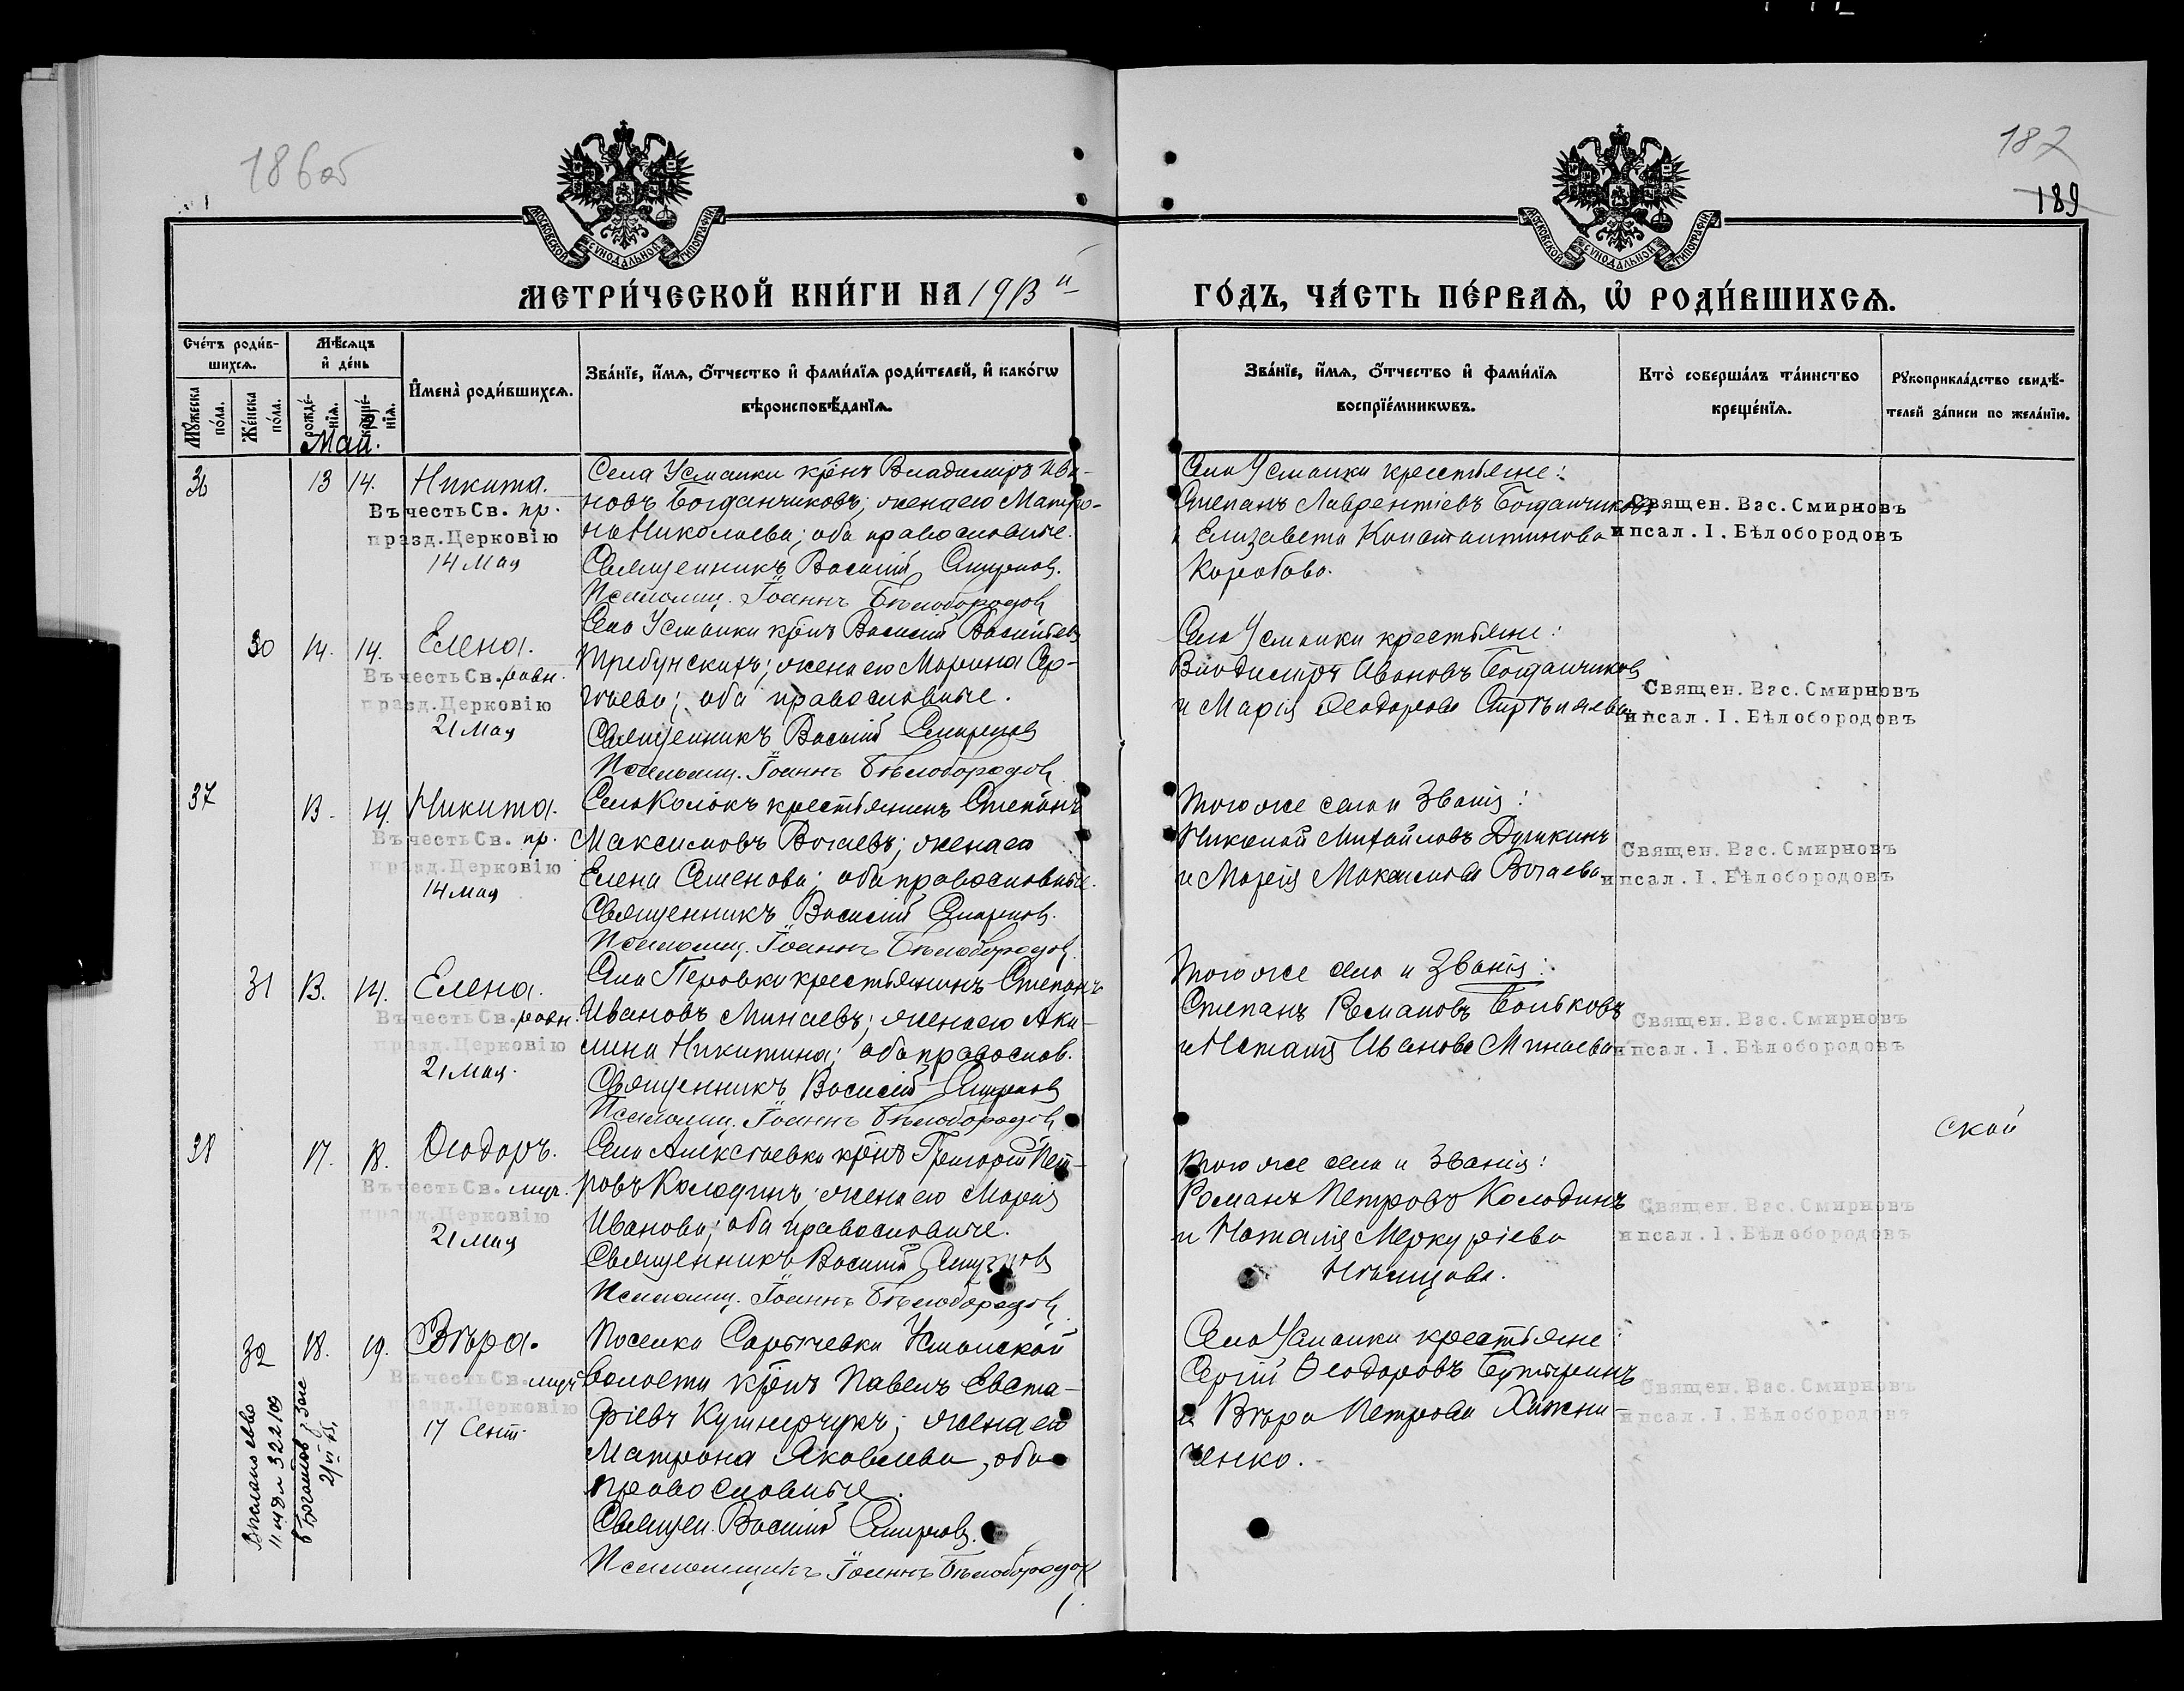 186об
187
189
МОСКОВСКОЙ СУНОДАЛЬНОЙ ТИПОГРАФІИ
МОСКОВСКОЙ СУНОДАЛЬНОЙ ТИПОГРАФІИ
МЕТРИ́ЧЕСКОЙ КНИ́ГИ НА 1913 й
ГО́ДЪ, ЧА́СТЬ ПЕ́РВАѦ, Ѡ҆ РОДИ́ВШИХСѦ.
Сче́тъ роди́вшихсѧ.
Мѣ́сѧцъ и҆ де́нь
Мꙋ́жеска по́ла.
Же́нска по́ла.
рожде́нїѧ.
креще́нїѧ.
И҆мена̀ роди́вшихсѧ.
Зва́нїе, и҆́мѧ, ѻ҆́тчество и҆ фами́лїѧ роди́телей, и҆ како́гѡ
вѣроисповѣ́данїѧ.
Зва́нїе, и҆́мѧ, ѻ҆́тчество и҆ фами́лїѧ
воспрїе́мникѡвъ.
Кто̀ соверша́лъ та́инство
креще́нїѧ.
Рꙋкоприкла́дство свидѣ́-
телей за́писи по жела́нїю.
Май.
36 13 14. Никита.
Въ честь Св. пр.
празд. Церковію
14 Мая
Села Усманки крнъ Владиміръ Ива-
новъ Богданчиковъ; жена его Матро-
на Николаева; оба православные.
Священникъ Василій Смирновъ.
Псаломщ. Іоаннъ Бѣлобородовъ
Села Усманки крестьяне:
Степанъ Лаврентіевъ Богданчиковъ
и Елизавета Константинова
Коробова.
Священ. Вас. Смирновъ
и псал. І. Бѣлобородовъ
30 14. 14. Елена.
Въ честь Св. равн.
празд. Церковію
21 Мая
Села Усманки крнъ Василій Васильевъ
Требунскихъ; жена его Марина Сер-
гѣева; оба православные.
Священникъ Василій Смирновъ
Псаломщ. Іоаннъ Бѣлобородовъ
Села Усманки крестьяне:
Владиміръ Ивановъ Богданчиковъ
и Марія Ѳеодорова
Священ. Вас. Смирновъ
и псал. І. Бѣлобородовъ
37 13. 14. Никита.
Въ честь Св. пр.
празд. Церковію
14 мая
Села Колокъ крестьянинъ Степанъ
Максимовъ Вогаевъ; жена его
Елена Семенова; оба православные.
Священникъ Василій Смирновъ.
Псаломщ. Іоаннъ Бѣлобородовъ
Того же села и званія:
Николай Михайловъ Душкинъ
и Марія Максимова Вогаева
Священ. Вас. Смирновъ
и псал. І. Бѣлобородовъ
31 13. 14. Елена.
Въ честь Св. равн.
празд. Церковію
21 мая.
Села Перовки крестьянинъ Степанъ
Ивановъ Минаевъ; жена его Аки-
лина Никитина; оба православ.
Священникъ Василій Смирновъ
Псаломщ. Іоаннъ Бѣлобородовъ
Того же села и званія:
Степанъ Романовъ
и Наталія Иванова Минаева
Священ. Вас. Смирновъ
и псал. І. Бѣлобородовъ
ской
38 17. 18. Ѳеодоръ.
Въ честь Св. муч.
празд. Церковію
21 мая
Села Алексѣевки крнъ Григорій Пет-
ровъ Колодинъ; жена его Марія
Иванова; оба православные.
Священникъ Василій Смирновъ
Псаломщ. Іоаннъ Бѣлобородовъ
Того же села и званія:
Романъ Петровъ Колодинъ
и Наталія Меркуріева
Нѣмцова.
Священ. Вас. Смирновъ
и псал. І. Бѣлобородовъ
32 18. 19. Вѣра.
Въ честь Св. муч
празд. Церковію
17 Сент.
Поселка Сарычевки Усманской
волости крнъ Павелъ Евста-
фіевъ Кушнерчукъ; жена его
Матрона Яковлева, оба
православные.
Священ. Василій Смирновъ.
Псаломщикъ Іоаннъ Бѣлобородовъ
Села Усманки крестьяне:
Сергій Ѳеодоровъ
и Вѣра Петрова Хижни-
ченко.
Священ. Вас. Смирновъ
и псал. І. Бѣлобородовъ